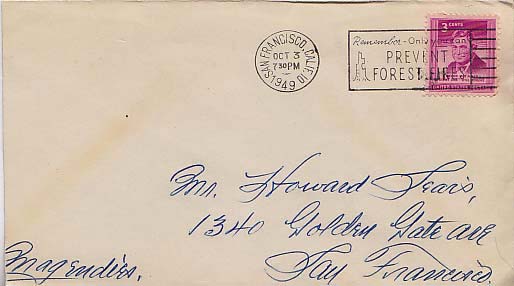 SAN FRANCISCO, CALIF. 10
OCT 3
7 30 PM
1949
Remember - Only you can
PREVENT
FOREST FIR
3 CENTS
UNITED STATES
Mr. Howard Sears,
1340 Golden Gate ave
San Francisco.
Magendies.